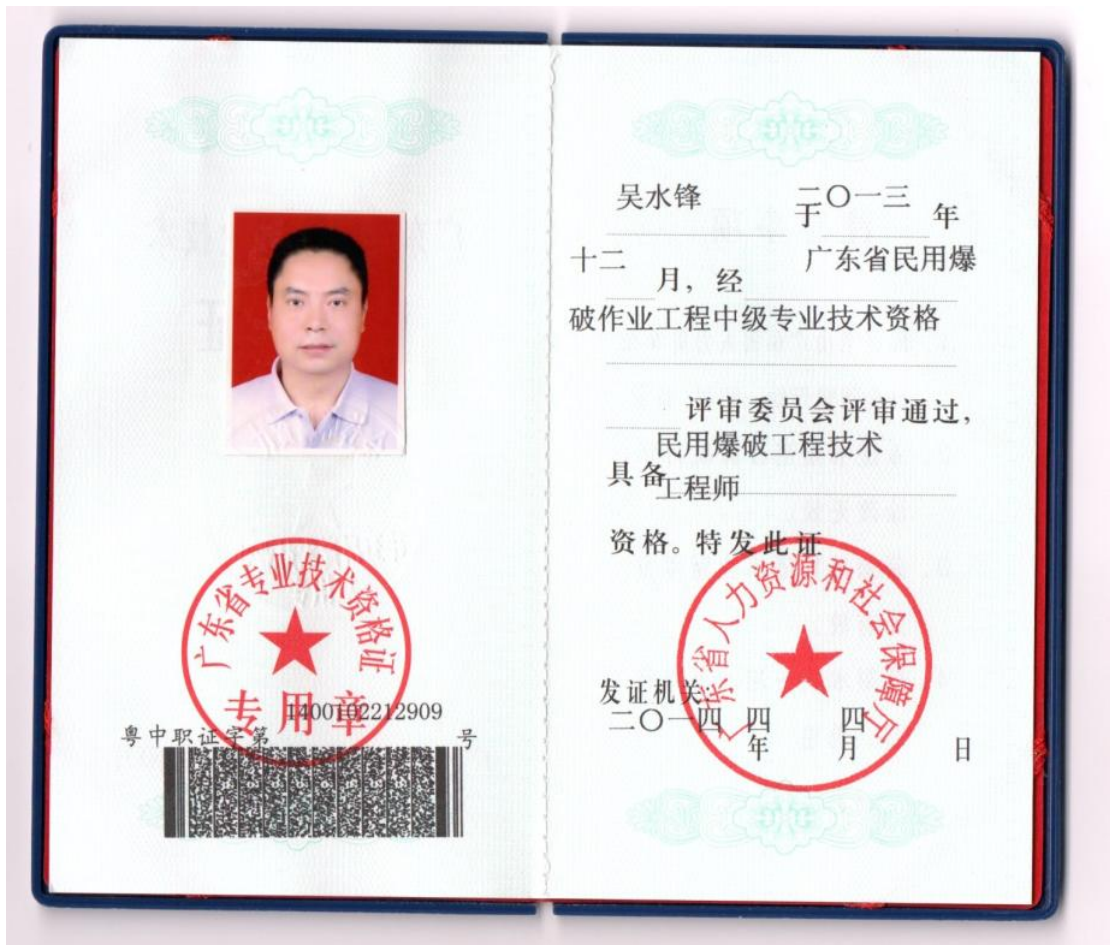 广东省专业技术资格证
专用章
1400102212909
粤中职证字第 号
吴水锋 于二〇一三年
十二月，经广东省民用爆
破作业工程中级专业技术资格
评审委员会评审通过，
民用爆破工程技术
具备工程师
资格。特发此证
广东省人力资源和社会保障厅
发证机关：
二〇一四年四月四日